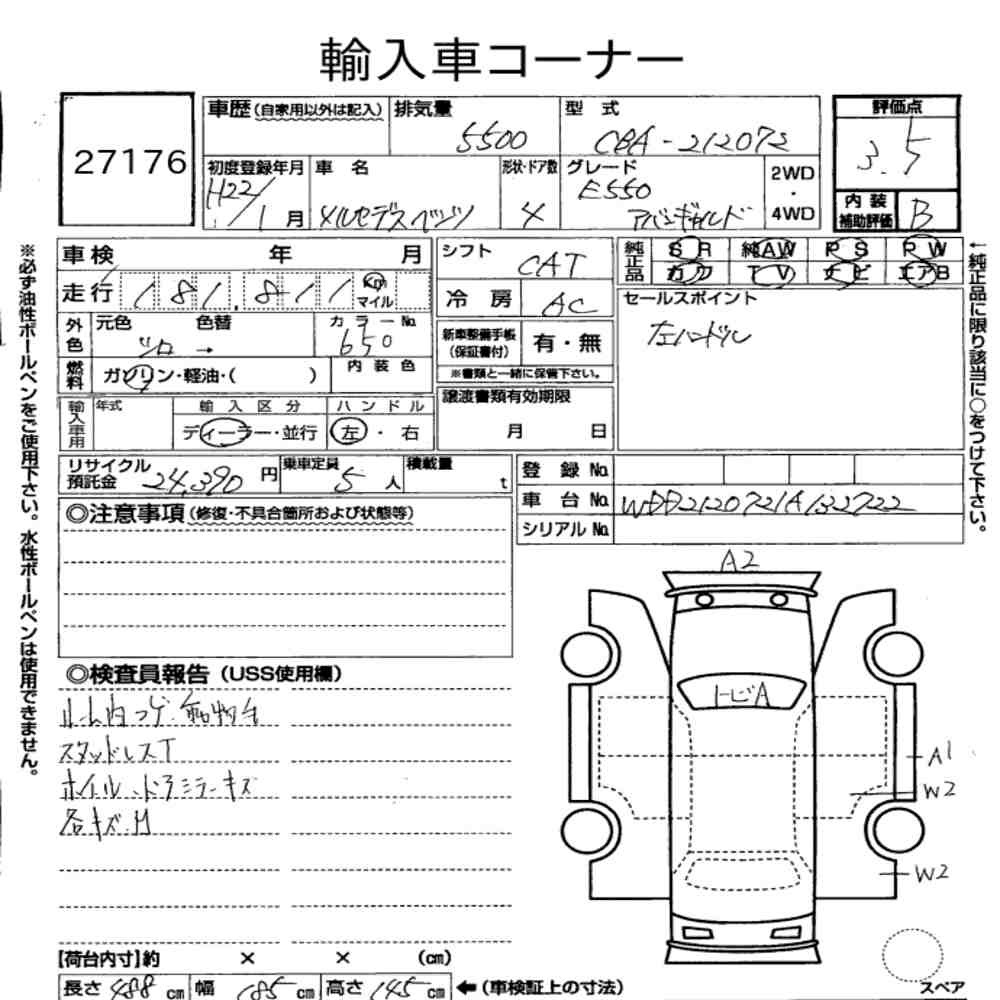 輸入車コーナー
27176
車歴(自家用以外は記入) 排気量 5500 型 式 CBA-212072
評価点 3.5
初度登録年月 H22/1月 車 名 メルセデスベンツ 形状・ドア数 4 グレード E550 アバンギャルド 2WD・4WD
内装補助評価 B
車検 年 月 シフト CAT
純正品 SR 純AW PS PW
カワ TV ナビ エアB
走行 181,811 Km マイル 冷房 AC
セールスポイント
左ハンドル
外色 元色 シロ 色替 → カラーNo. 650
新車整備手帳(保証書付) 有・無
※書類と一緒に保管下さい。
燃料 ガソリン・軽油・( ) 内装色
譲渡書類有効期限 月 日
輸入車用 年式 輸入区分 ハンドル
ディーラー・並行 左・右
リサイクル預託金 24,390円 乗車定員 5人 積載量 t
登録No.
車台No. WDD2120721A132722
シリアルNo.
◎注意事項(修復・不具合箇所および状態等)
◎検査員報告(USS使用欄)
スタッドレスT
ホイル、ドアミラーキズ
各キズ.H
A2
トビA
A1
W2
W2
スペア
【荷台内寸】約 × × (cm)
長さ 488cm 幅 185cm 高さ 145cm ←(車検証上の寸法)
※必ず油性ボールペンをご使用下さい。水性ボールペンは使用できません。
←純正品に限り該当に○をつけて下さい。